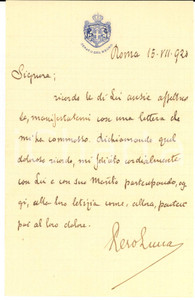 Roma 15-VII-920
Signora;
ricordo le di Lei ansie affettuo-
se, manifestatemi con una lettera che
mi ha commosso. Richiamando quel
doloroso ricordo, mi felicito cordialmente
con Lei e con suo Marito partecipando, og-
gi, alla loro letizia come, allora, parteci-
pai al loro dolore.